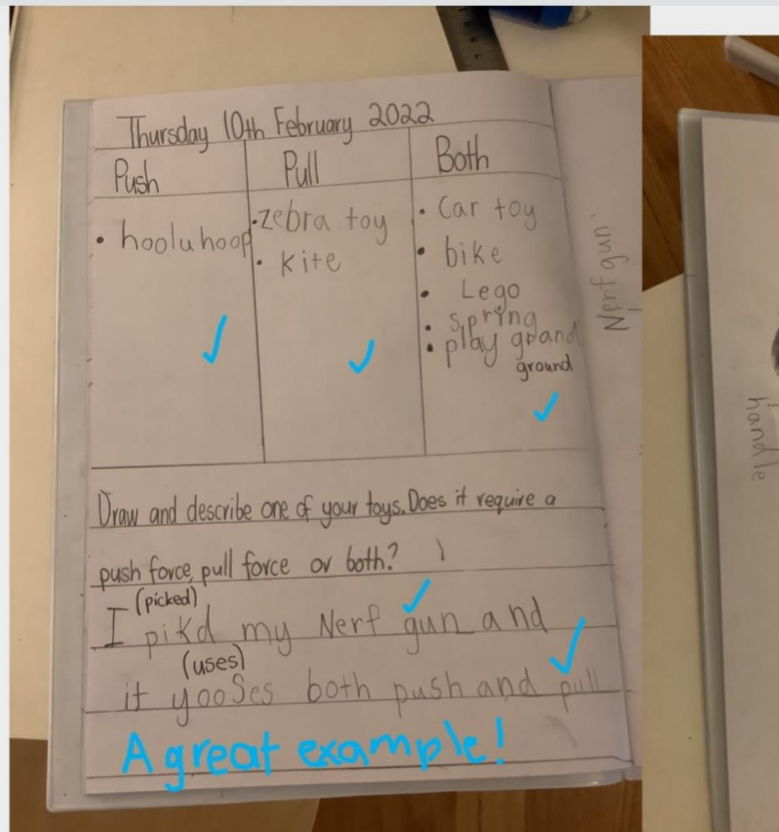 Thursday 10th February 2022
Push
Pull
Both
• hooluhoop
• zebra toy
• kite
• Car toy
• bike
• Lego
• spring
• play grand
ground
Draw and describe one of your toys. Does it require a
push force, pull force or both?
(picked)
I pikd my Nerf gun and
(uses)
it yooses both push and pull
A great example!
Nerf gun.
handle